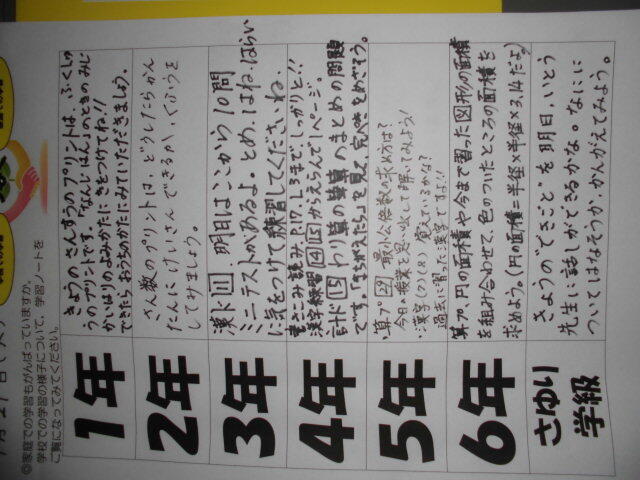 ◎家庭での学習もがんばっていますか。
学校での学習の様子について、学習ノートを
ご覧になってみてください。
1年
きょうの さんすうのプリントは、ふくしゅ
うのプリントです。「なんじ・はん」のときの みじ
かいはりのよみかたに きをつけてね!!
できたら、おうちのかたに みていただきましょう。
2年
さん数のプリントは、どうしたらかん
たんに けいさんできるか くふうを
してみましょう。
3年
漢ド 11 明日はここから10問
ミニテストがあるよ。とめ、はね、はらい
に気をつけて練習してくださいね。
4年
書きこみ読み、P.17、L3まで、しっかりと!!
漢字練習 14 15 からえらんで1ページ。
計ド 15 わり算の筆算のまとめの問題
です。「まちがえたら」を見て、完ぺきをめざそう。
5年
・算プ 29 最小公倍数の求め方は?
今日の授業を思い出して解いてみよう!
・漢字(7)(8) 覚えているかな?
過去に習った漢字ですよ!!
6年
算プ、円の面積や今まで習った図形の面積
を組み合わせて、色のついたところの面積を
求めよう。(円の面積=半径×半径×3.14だよ)
さゆり
学級
きょうの“できごと”を明日、いとう
先生に話しができるかな。なにに
ついてはなそうか、かんがえてみよう。